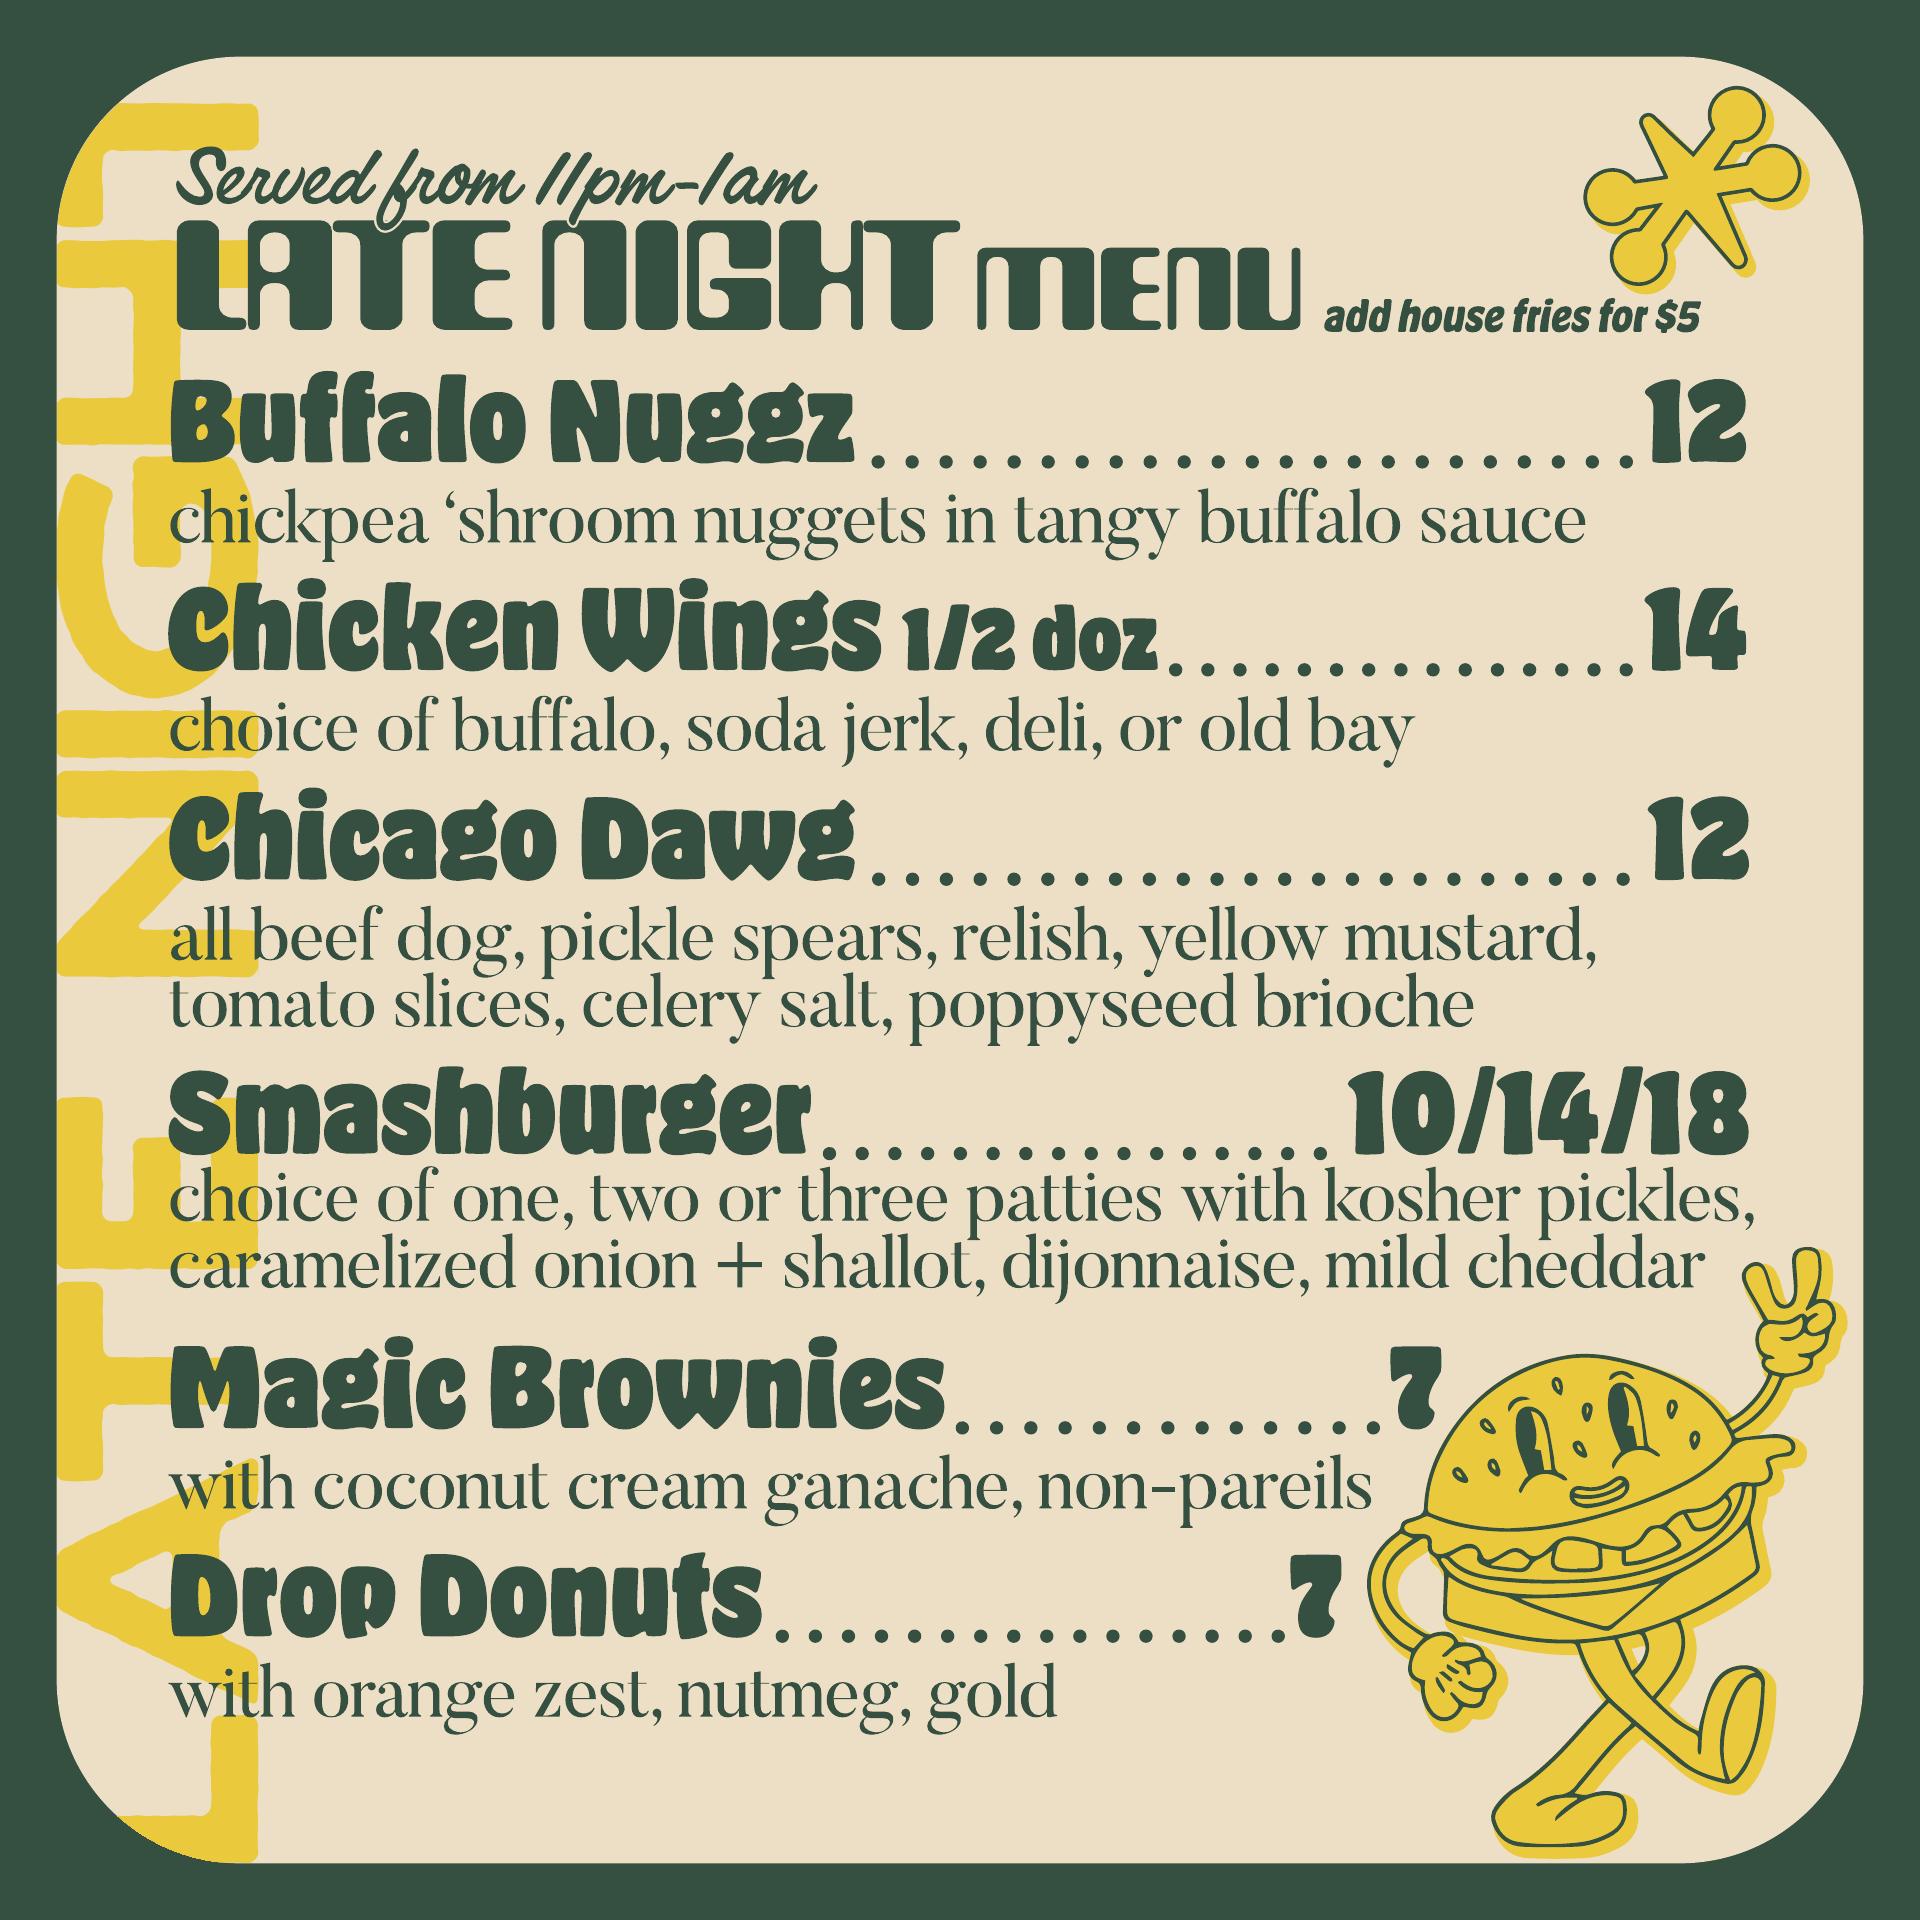 Served from 11pm-1am
LATE NIGHT MENU add house fries for $5
Buffalo Nuggz 12
chickpea ‘shroom nuggets in tangy buffalo sauce
Chicken Wings 1/2 doz 14
choice of buffalo, soda jerk, deli, or old bay
Chicago Dawg 12
all beef dog, pickle spears, relish, yellow mustard,
tomato slices, celery salt, poppyseed brioche
Smashburger 10/14/18
choice of one, two or three patties with kosher pickles,
caramelized onion + shallot, dijonnaise, mild cheddar
Magic Brownies 7
with coconut cream ganache, non-pareils
Drop Donuts 7
with orange zest, nutmeg, gold
LATE NIGHT